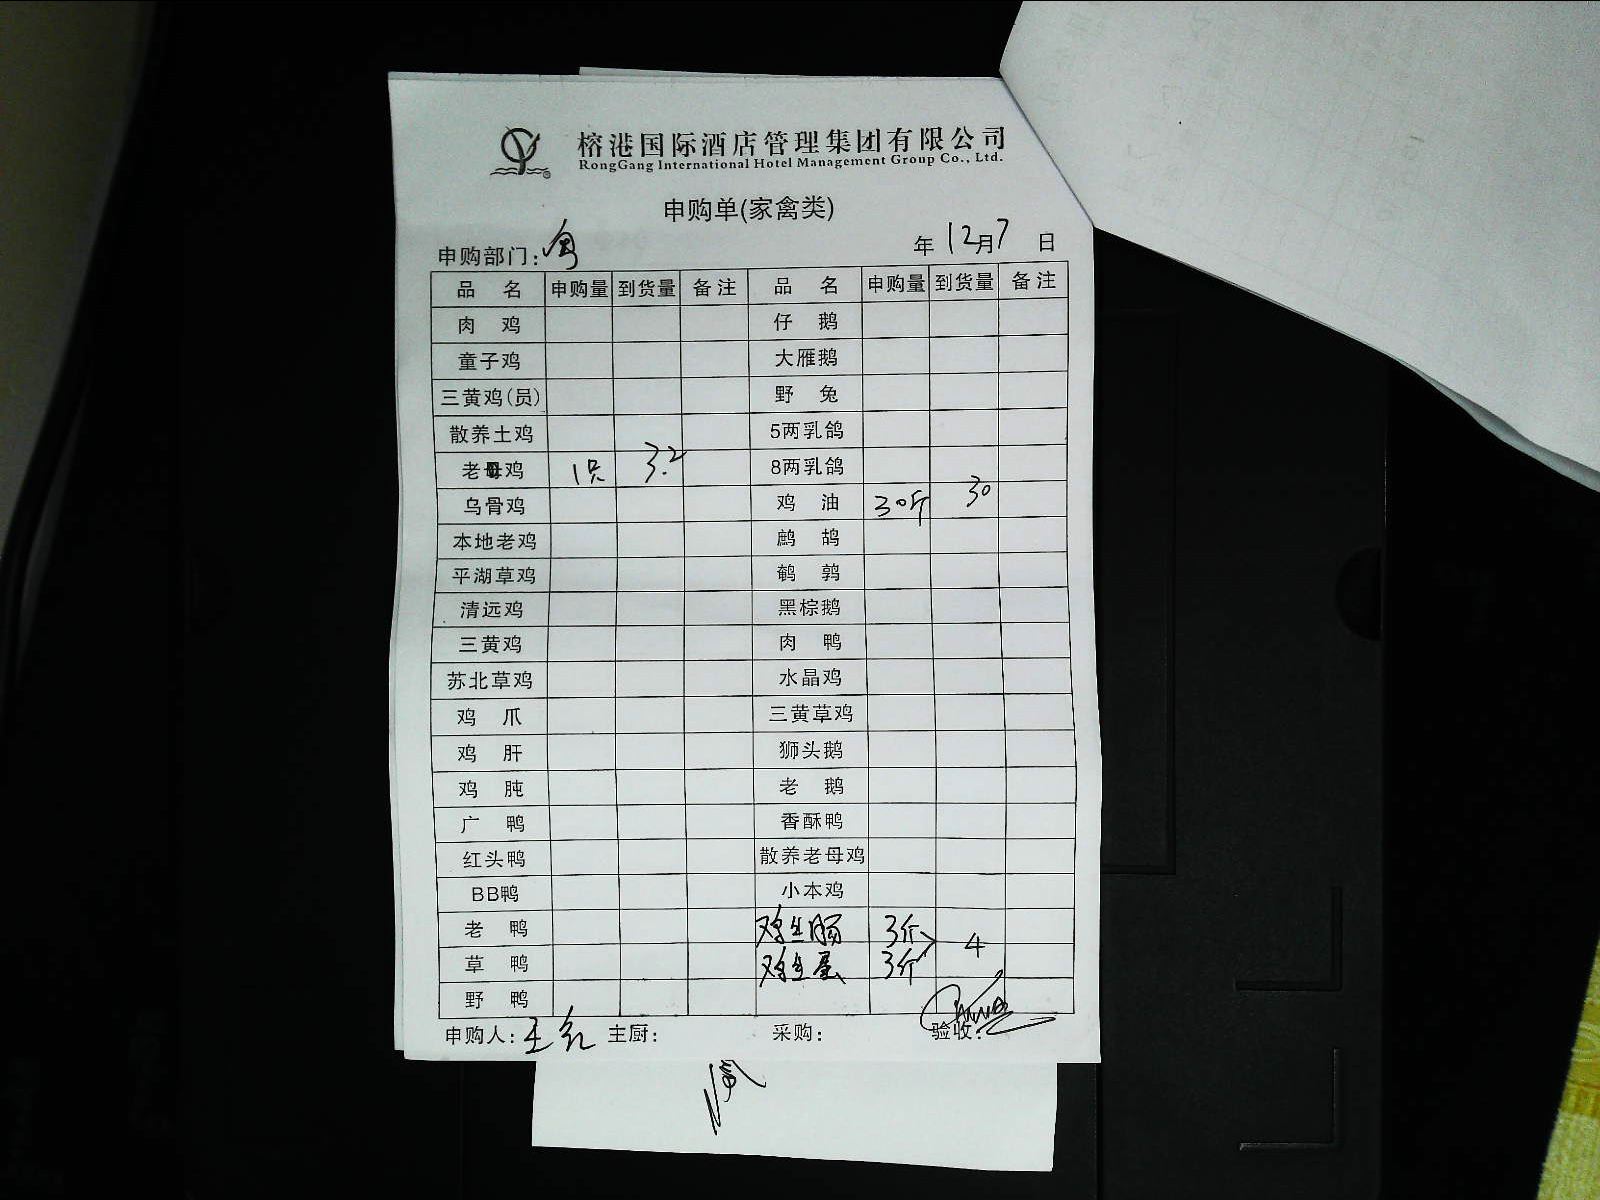 榕港国际酒店管理集团有限公司
RongGang International Hotel Management Group Co., Ltd.
申购单(家禽类)
申购部门： 年 12月7 日
品 名 申购量 到货量 备注 品 名 申购量 到货量 备注
肉 鸡 仔 鹅
童子鸡 大雁鹅
三黄鸡(员) 野 兔
散养土鸡 5两乳鸽
老母鸡 1只 3.2 8两乳鸽
乌骨鸡 鸡 油 30斤 30
本地老鸡 鹧 鸪
平湖草鸡 鹌 鹑
清远鸡 黑棕鹅
三黄鸡 肉 鸭
苏北草鸡 水晶鸡
鸡 爪 三黄草鸡
鸡 肝 狮头鹅
鸡 肫 老 鹅
广 鸭 香酥鸭
红头鸭 散养老母鸡
BB鸭 小本鸡
老 鸭 鸡生肠 3斤 4
草 鸭 鸡生蛋 3斤
野 鸭
申购人： 主厨： 采购： 验收：